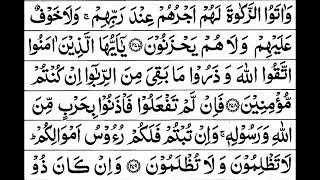 وَاٰتَوُا الزَّكٰوةَ لَهُمْ اَجْرُهُمْ عِنْدَ رَبِّهِمْ ۚ وَلَا خَوْفٌ
عَلَيْهِمْ وَلَا هُمْ يَحْزَنُوْنَ ﴿۲۷۷﴾ يٰۤاَيُّهَا الَّذِيْنَ اٰمَنُوا
اتَّقُوا اللّٰهَ وَ ذَرُوْا مَا بَقِيَ مِنَ الرِّبٰۤوا اِنْ كُنْتُمْ
مُّؤْمِنِيْنَ ﴿۲۷۸﴾ فَاِنْ لَّمْ تَفْعَلُوْا فَاْذَنُوْا بِحَرْبٍ مِّنَ
اللّٰهِ وَرَسُوْلِهٖ ۚ وَاِنْ تُبْتُمْ فَلَكُمْ رُءُوْسُ اَمْوَالِكُمْ ۚ
لَا تَظْلِمُوْنَ وَلَا تُظْلَمُوْنَ ﴿۲۷۹﴾ وَاِنْ كَانَ ذُوْ